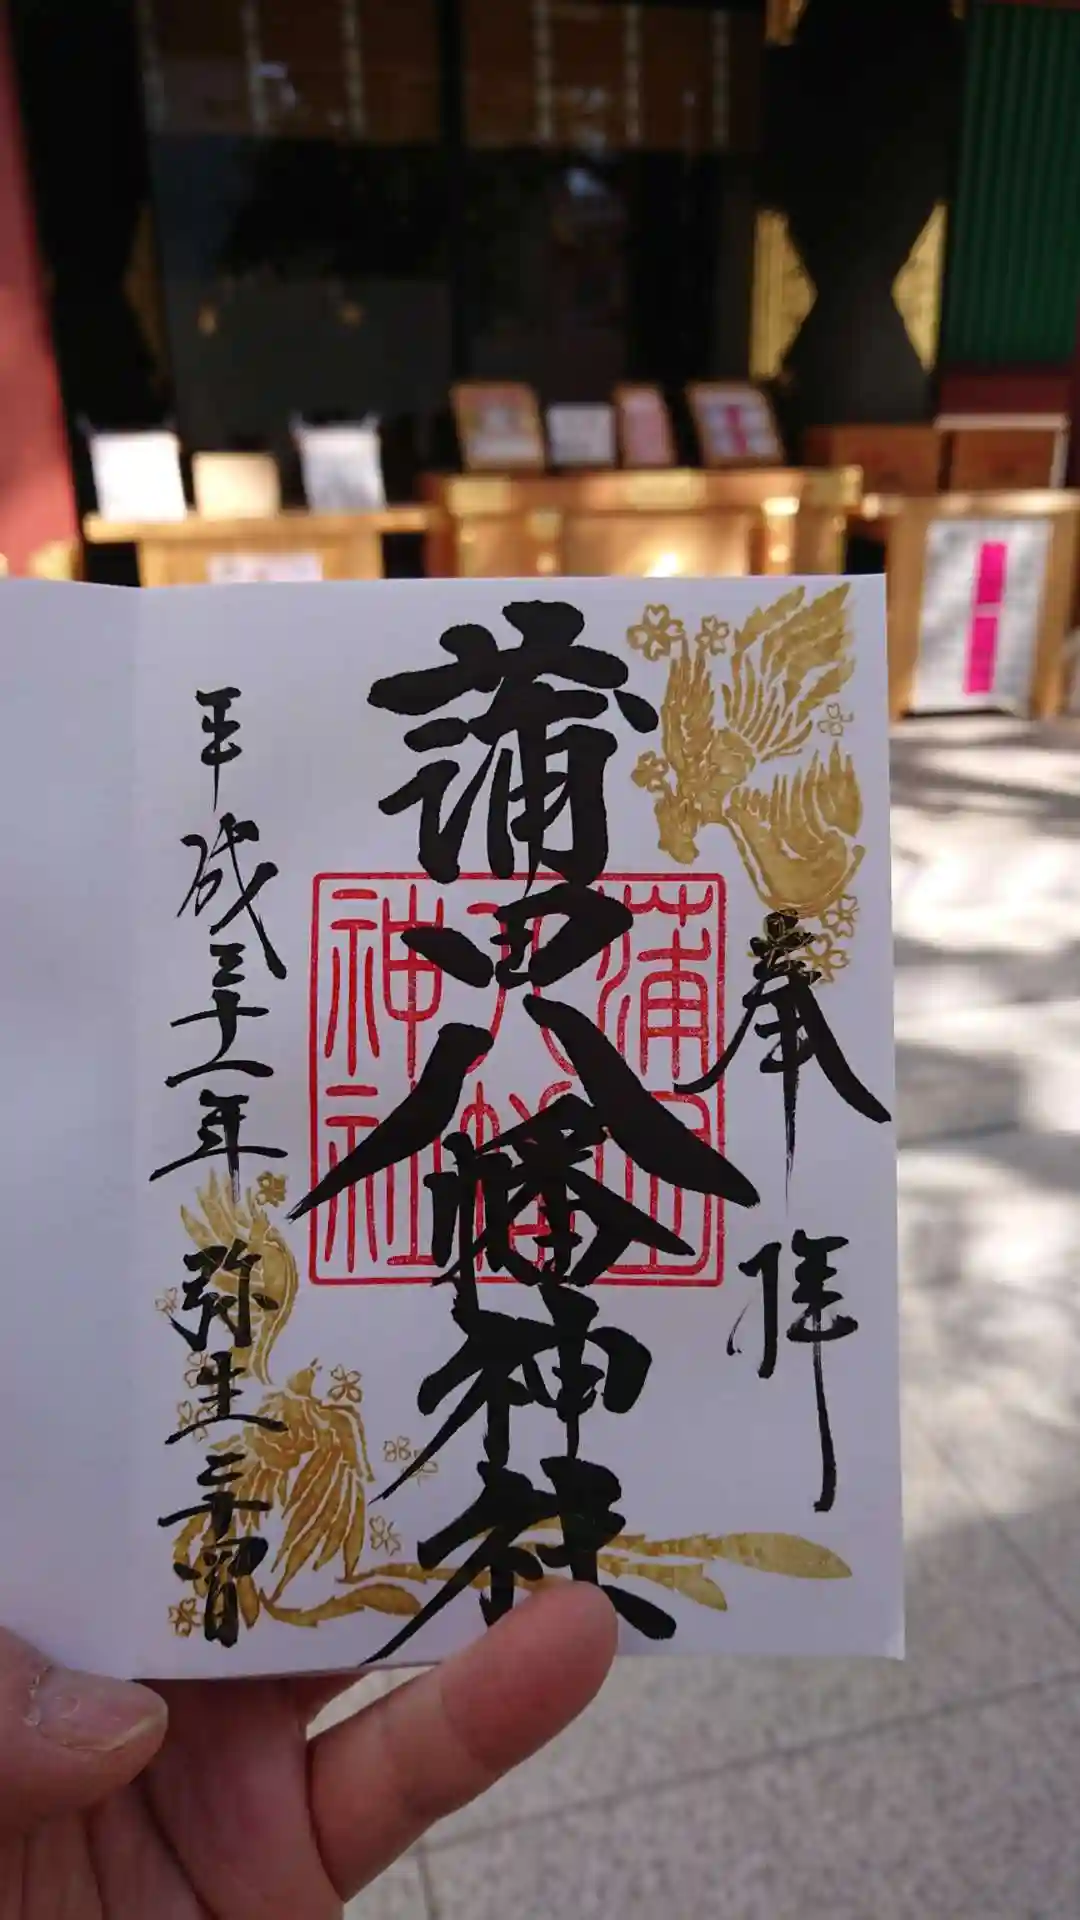 奉拝
蒲田八幡神社
蒲田八幡神社
平成三十一年 弥生三十習